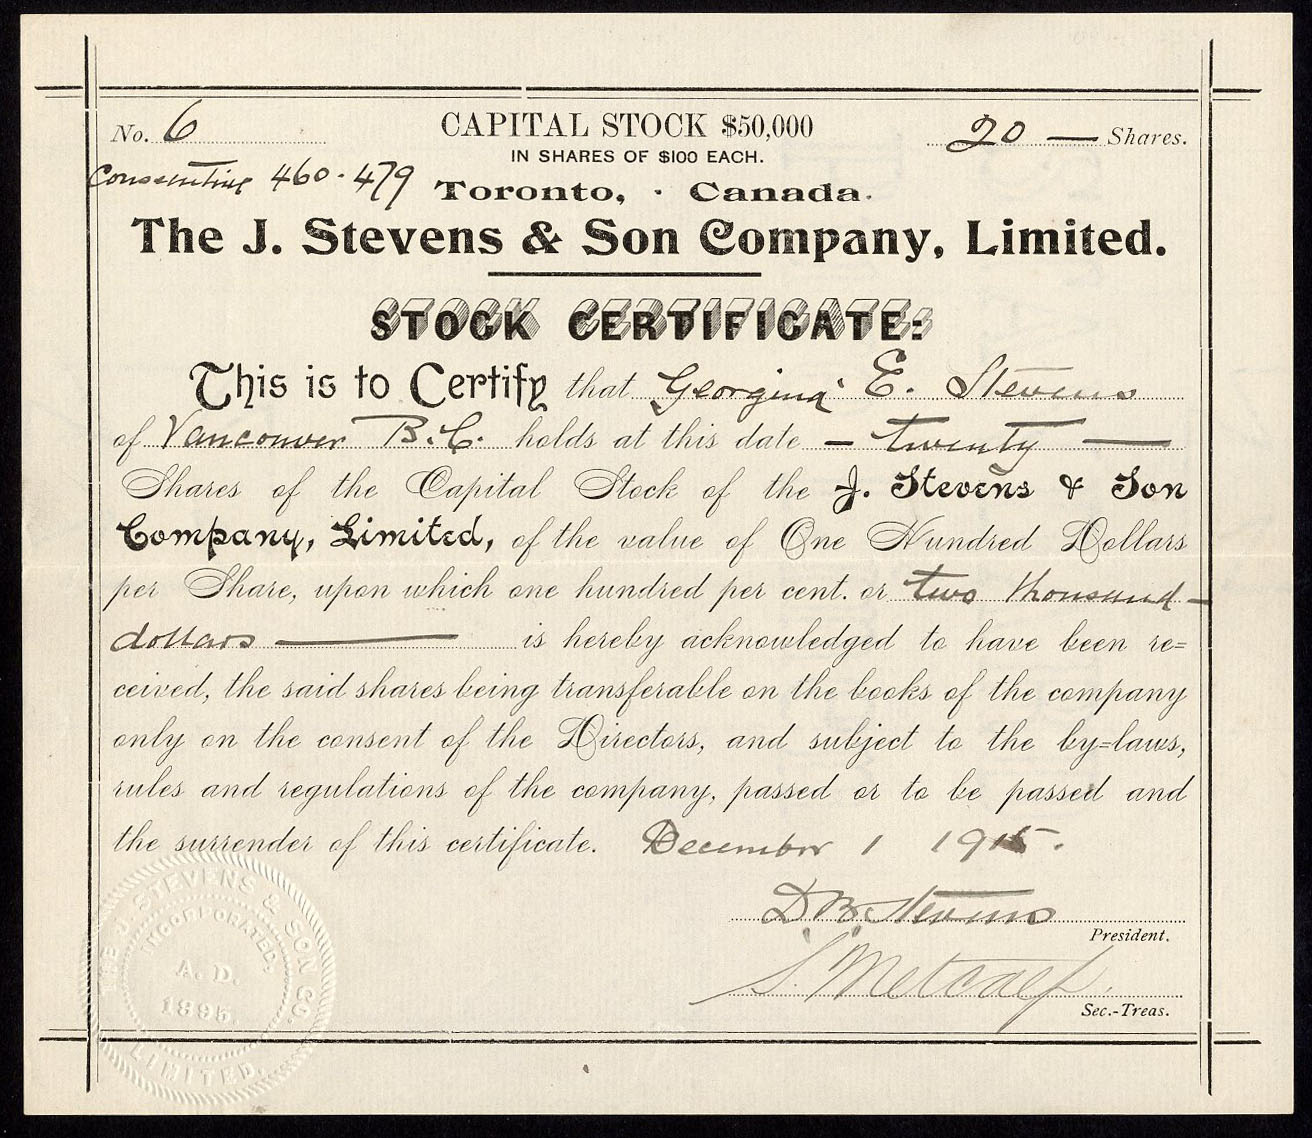 No. 6 CAPITAL STOCK $50,000 20 — Shares.
IN SHARES OF $100 EACH.
Consecutive 460-479 Toronto, · Canada.
The J. Stevens & Son Company, Limited.
STOCK CERTIFICATE:
This is to Certify that Georgina E. Stevens
of Vancouver B.C. holds at this date — twenty —
Shares of the Capital Stock of the J. Stevens & Son
Company, Limited, of the value of One Hundred Dollars
per Share, upon which one hundred per cent. or two thousand
dollars — is hereby acknowledged to have been re=
ceived, the said shares being transferable on the books of the company
only on the consent of the Directors, and subject to the by=laws,
rules and regulations of the company, passed or to be passed and
the surrender of this certificate. December 1 1915.
D B Stevens
President.
S. Metcalf
Sec.-Treas.
THE J. STEVENS & SON CO. LIMITED.
INCORPORATED,
A. D.
1895.